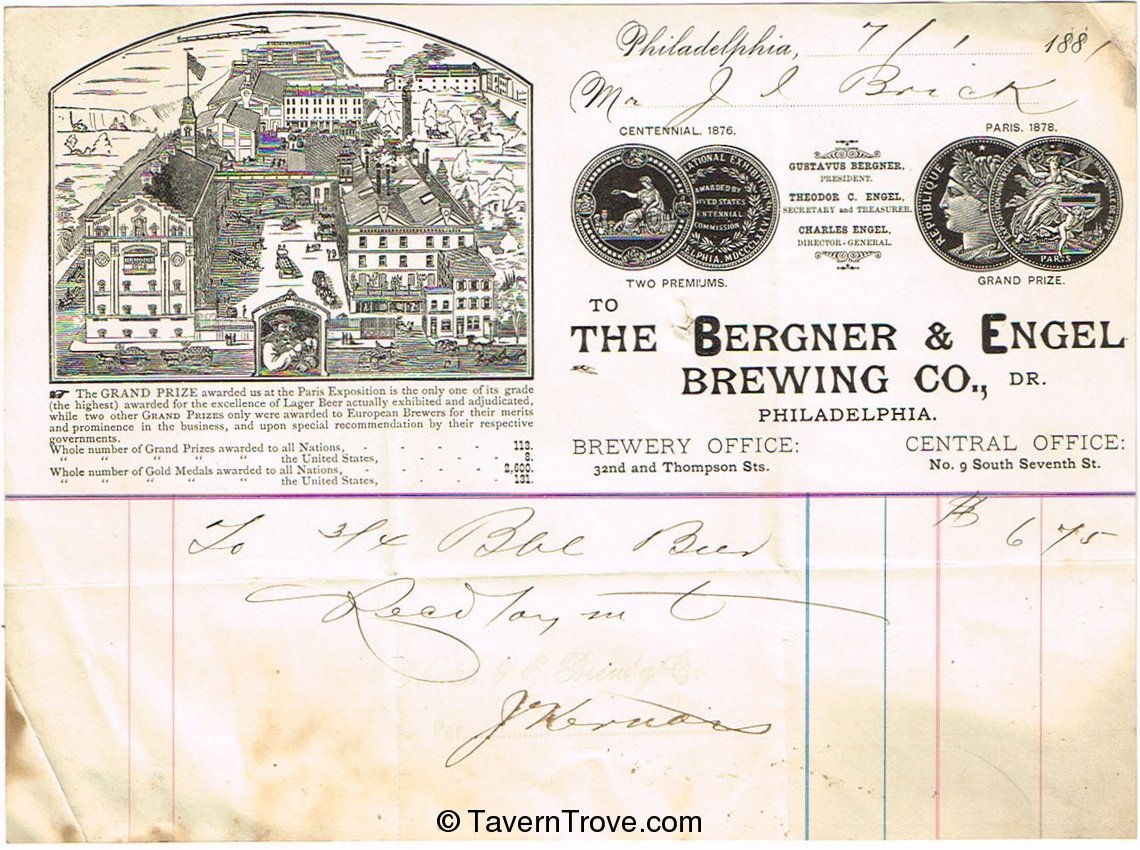 Philadelphia, 7/1 1881
Mr J I Brick
CENTENNIAL, 1876.
PARIS, 1878.
GUSTAVUS BERGNER,
PRESIDENT.
THEODOR C. ENGEL,
SECRETARY and TREASURER.
CHARLES ENGEL,
DIRECTOR-GENERAL.
REPUBLIQUE
PARIS
AWARDED BY
UNITED STATES
CENTENNIAL
COMMISSION
TWO PREMIUMS.
GRAND PRIZE.
TO
THE BERGNER & ENGEL
BREWING CO., DR.
PHILADELPHIA.
BREWERY OFFICE:
32nd and Thompson Sts.
CENTRAL OFFICE:
No. 9 South Seventh St.
The GRAND PRIZE awarded us at the Paris Exposition is the only one of its grade
(the highest) awarded for the excellence of Lager Beer actually exhibited and adjudicated,
while two other GRAND PRIZES only were awarded to European Brewers for their merits
and prominence in the business, and upon special recommendation by their respective
governments.
Whole number of Grand Prizes awarded to all Nations, - - - - 113.
" " " " " the United States, - - - - 8.
Whole number of Gold Medals awarded to all Nations, - - - - 2,600.
" " " " " the United States, - - - - 131.
To 3/4 Bbl Beer $ 6 75
Recd Paymt
Brew'g Co
Per
© TavernTrove.com